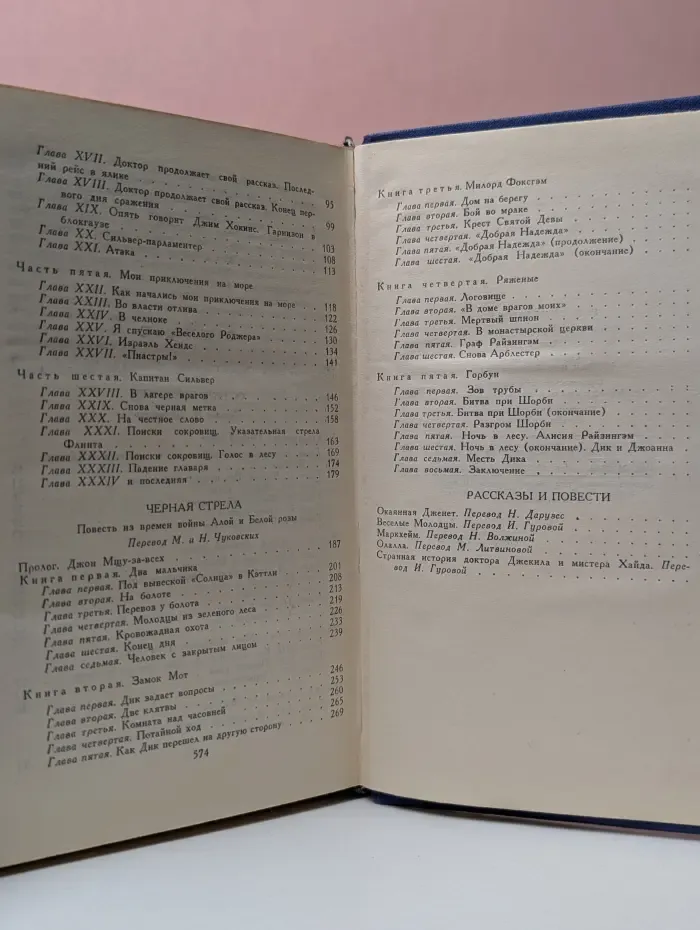 Глава XVII. Доктор продолжает свой рассказ. Послед-
ний рейс в ялике . . . . . . . . . . 95
Глава XVIII. Доктор продолжает свой рассказ. Конец пер-
вого дня сражения . . . . . . . . . . 99
Глава XIX. Опять говорит Джим Хокинс. Гарнизон в
блокгаузе . . . . . . . . . . 103
Глава XX. Сильвер-парламентер . . . . . . . 108
Глава XXI. Атака . . . . . . . . . . 113
Часть пятая. Мои приключения на море
Глава XXII. Как начались мои приключения на море . . 118
Глава XXIII. Во власти отлива . . . . . . . 122
Глава XXIV. В челноке . . . . . . . . 126
Глава XXV. Я спускаю «Веселого Роджера» . . . . 130
Глава XXVI. Израэль Хендс . . . . . . . 134
Глава XXVII. «Пиастры!» . . . . . . . . 141
Часть шестая. Капитан Сильвер
Глава XXVIII. В лагере врагов . . . . . . . 146
Глава XXIX. Снова черная метка . . . . . . 152
Глава XXX. На честное слово . . . . . . . 158
Глава XXXI. Поиски сокровищ. Указательная стрела
Флинта . . . . . . . . . . 163
Глава XXXII. Поиски сокровищ. Голос в лесу . . . 169
Глава XXXIII. Падение главаря . . . . . . 174
Глава XXXIV и последняя . . . . . . . . 179
ЧЕРНАЯ СТРЕЛА
Повесть из времен войны Алой и Белой розы
Перевод М. и Н. Чуковских
Пролог. Джон Мщу-за-всех . . . . . . . . 187
Книга первая. Два мальчика
Глава первая. Под вывеской «Солнца» в Кэттли . . . 201
Глава вторая. На болоте . . . . . . . . 208
Глава третья. Перевоз у болота . . . . . . 213
Глава четвертая. Молодцы из зеленого леса . . . . 219
Глава пятая. Кровожадная охота . . . . . . 226
Глава шестая. Конец дня . . . . . . . . 233
Глава седьмая. Человек с закрытым лицом . . . . 239
Книга вторая. Замок Мот
Глава первая. Дик задает вопросы . . . . . . 246
Глава вторая. Две клятвы . . . . . . . . 253
Глава третья. Комната над часовней . . . . . 260
Глава четвертая. Потайной ход . . . . . . 265
Глава пятая. Как Дик перешел на другую сторону . . 269
574
Книга третья. Милорд Фоксгэм
Глава первая. Дом на берегу . . . . . . .
Глава вторая. Бой во мраке . . . . . . .
Глава третья. Крест Святой Девы . . . . . .
Глава четвертая. «Добрая Надежда» . . . . .
Глава пятая. «Добрая Надежда» (продолжение) . . .
Глава шестая. «Добрая Надежда» (окончание) . . .
Книга четвертая. Ряженые
Глава первая. Логовище . . . . . . . .
Глава вторая. «В доме врагов моих» . . . . .
Глава третья. Мертвый шпион . . . . . . .
Глава четвертая. В монастырской церкви . . . .
Глава пятая. Граф Райзингэм . . . . . . .
Глава шестая. Снова Арблестер . . . . . . .
Книга пятая. Горбун
Глава первая. Зов трубы . . . . . . . .
Глава вторая. Битва при Шорби . . . . . .
Глава третья. Битва при Шорби (окончание) . . . .
Глава четвертая. Разгром Шорби . . . . . .
Глава пятая. Ночь в лесу. Алисия Райзингэм . . .
Глава шестая. Ночь в лесу (окончание). Дик и Джоанна .
Глава седьмая. Месть Дика . . . . . . .
Глава восьмая. Заключение . . . . . . . .
РАССКАЗЫ И ПОВЕСТИ
Окаянная Дженет. Перевод Н. Дарузес . . . . .
Веселые Молодцы. Перевод И. Гуровой . . . . .
Маркхейм. Перевод Н. Волжиной . . . . . .
Олалла. Перевод М. Литвиновой . . . . . .
Странная история доктора Джекила и мистера Хайда. Пере-
вод И. Гуровой . . . . . . . . . .